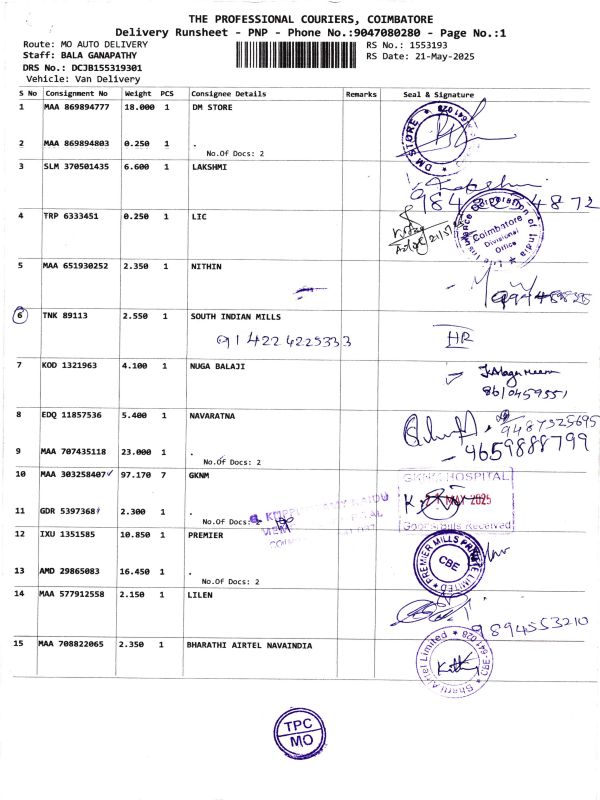 THE PROFESSIONAL COURIERS, COIMBATORE
Delivery Runsheet - PNP - Phone No.:9047080280 - Page No.:1
Route: MO AUTO DELIVERY RS No.: 1553193
Staff: BALA GANAPATHY RS Date: 21-May-2025
DRS No.: DCJB155319301
Vehicle: Van Delivery
S No Consignment No Weight PCS Consignee Details Remarks Seal & Signature
1 MAA 869894777 18.000 1 DM STORE
DM STORE
2 MAA 869894803 0.250 1 .
No.Of Docs: 2
3 SLM 370501435 6.600 1 LAKSHMI
4872
4 TRP 6333451 0.250 1 LIC
Life Insurance Corporation of India
Coimbatore
Divisional
Office
5 MAA 651930252 2.350 1 NITHIN
6 TNK 89113 2.550 1 SOUTH INDIAN MILLS
914224225333 HR
7 KOD 1321963 4.100 1 NUGA BALAJI
8610459551
8 EDQ 11857536 5.400 1 NAVARATNA
9487525695
9 MAA 707435118 23.000 1 .
9659888799
No.Of Docs: 2
10 MAA 303258407 97.170 7 GKNM
GKNM HOSPITAL
MAY 2025
Goods/Bills Received
11 GDR 5397368 2.300 1 .
No.Of Docs: 2
12 IXU 1351585 10.850 1 PREMIER
PREMIER MILLS PRIVATE LIMITED
CBE
13 AMD 29865083 16.450 1 .
No.Of Docs: 2
14 MAA 577912558 2.150 1 LILEN
9894553210
15 MAA 708822065 2.350 1 BHARATHI AIRTEL NAVAINDIA
Bharti Airtel Limited CBE-641 028
TPC
MO